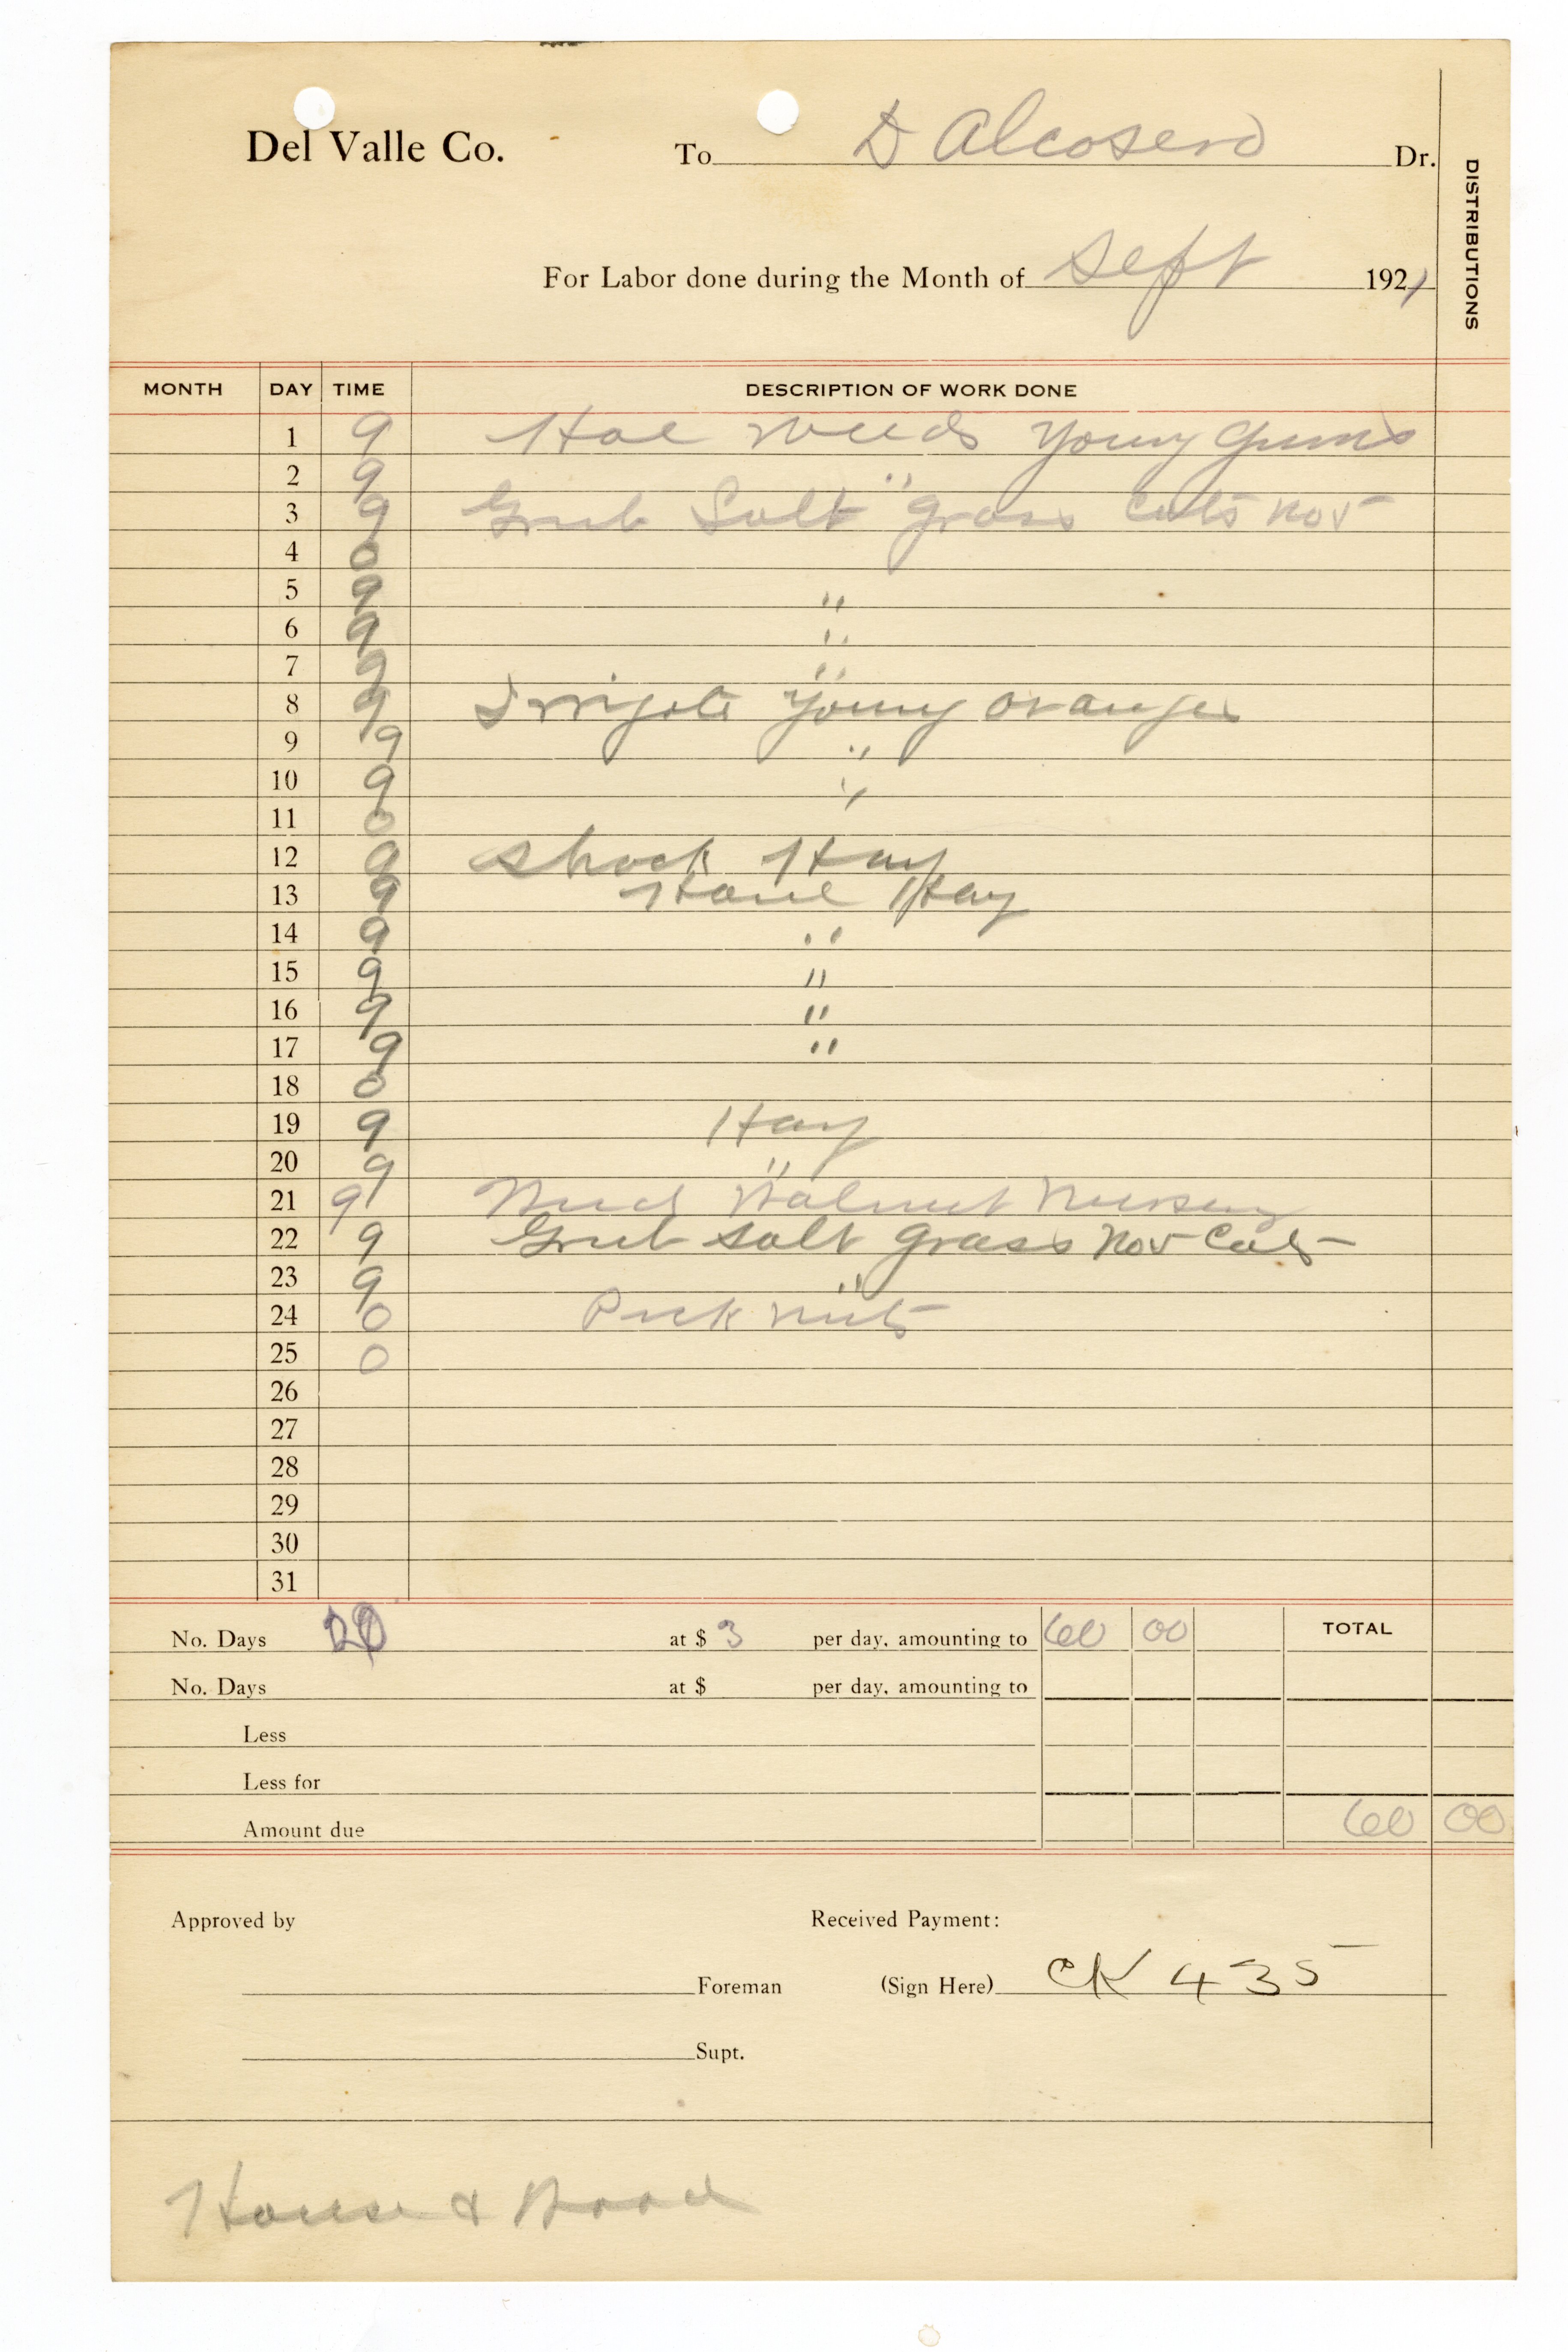 Del Valle Co. To D Alcosero Dr.
DISTRIBUTIONS
For Labor done during the Month of Sept 1921
MONTH DAY TIME DESCRIPTION OF WORK DONE
1 9 Hoe weeds young gums
2 9 "
3 9 Grub Salt grass cuts no 5
4 0
5 9 "
6 9 "
7 9 "
8 9 Irrigate young oranges
9 9 "
10 9 "
11 0
12 9 Shock Hay
13 9 Haul Hay
14 9 "
15 9 "
16 9 "
17 9 "
18 0
19 9 Hay
20 9 "
21 9 Weed Walnut Nursery
22 9 Grub Salt grass no 5 Cuts
23 9 "
24 0 Pick nuts
25 0
26
27
28
29
30
31
No. Days 20 at $ 3 per day, amounting to 60 00 TOTAL
No. Days at $ per day, amounting to
Less
Less for
Amount due 60 00
Approved by Received Payment:
Foreman (Sign Here) CK 435
Supt.
House & Wood